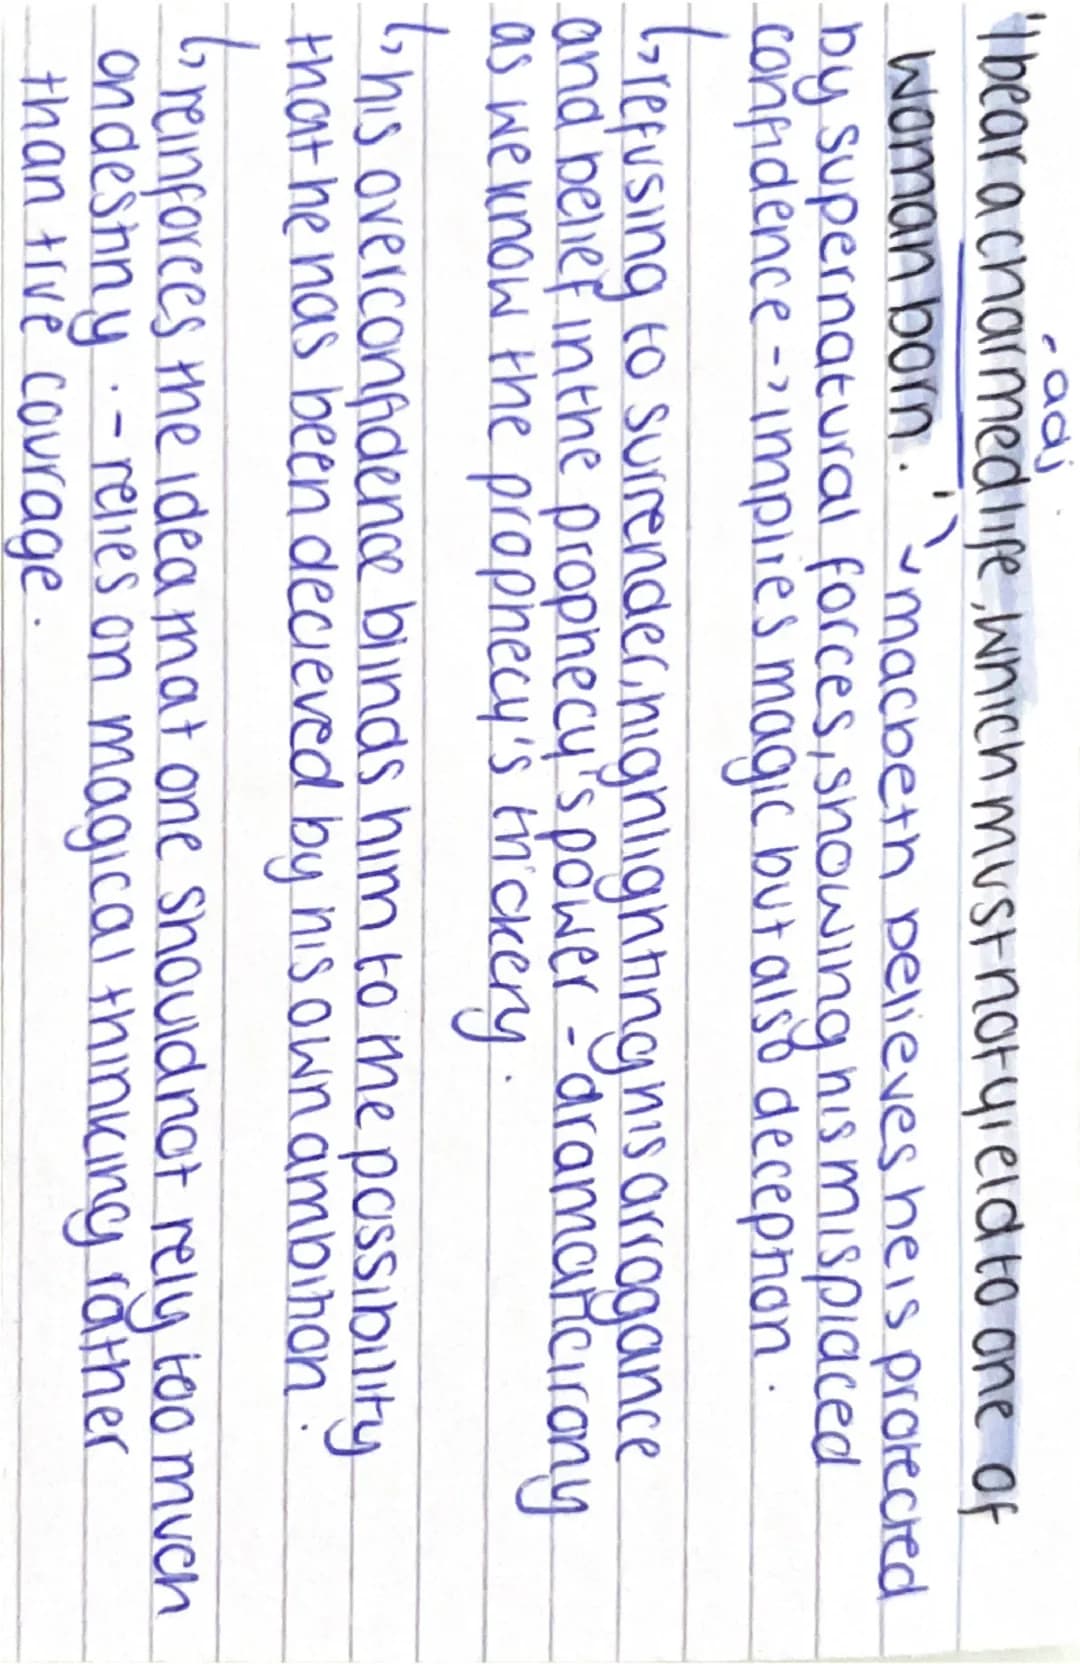 - adj
"I bear a charmed life, which must not yield to one of
woman born." ~ macbeth believes he is protected
by supernatural forces, showing his misplaced
confidence -> implies magic but also deception.
↳ refusing to surrender, highlighting his arrogance
and belief in the prophecy's power - dramatic irony
as we know the prophecy's trickery.
↳ his overconfidence blinds him to the possibility
that he has been decieved by his own ambition.
↳ reinforces the idea that one should not rely too much
on destiny. - relies on magical thinking rather
than true courage.